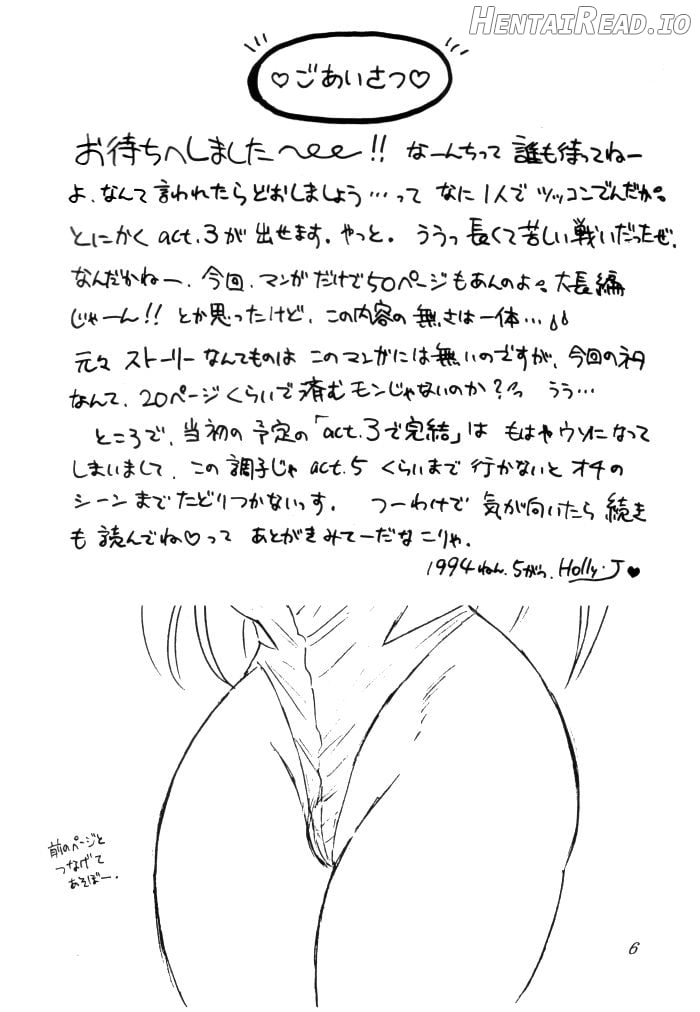 HENTAIREAD.IO
♡ごあいさつ♡
お待ちへしました〜!! なーんちって 誰も待ってねー
よ、なんて言われたらどおしましょう…って なに1人で ツッコンでんだか。
とにかく act.3が 出せます。やっと。 ううっ 長くて苦しい戦いだったぜ。
なんだかねー、今回、マンガだけで50ページもあんのよ。大長編
じゃーん!! とか思ったけど、この内容の 無さは一体…
元々 ストーリーなんてものは このマンガには無いのですが、今回のネタ
なんて、20ページくらいで済むモンじゃないのか?っ うぅ…
ところで、当初の予定の「act.3で完結」は もはやウソになって
しまいまして、この調子じゃ act.5 くらいまで 行かないと オチの
シーンまでたどりつかないっす。 つーわけで 気が向いたら 続き
も 読んでね♡って あとがきみてーだな こりゃ。
1994ねん.5がつ. Holly・J♥
前のページと
つなげて
あそぼー.
6